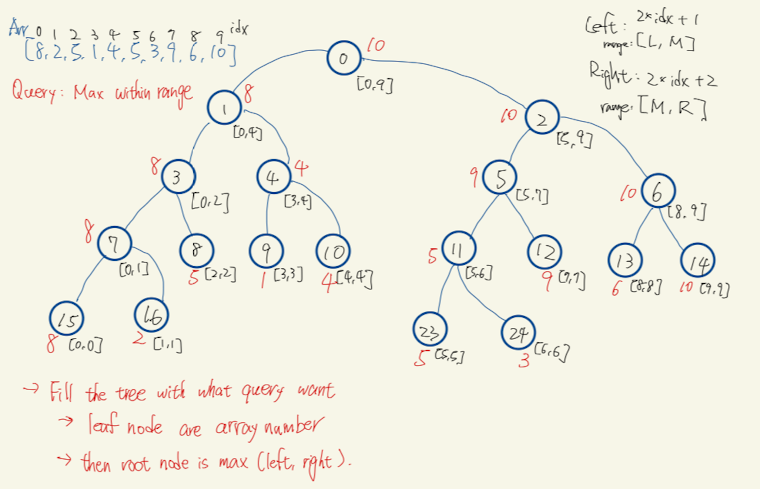 Arr 0 1 2 3 4 5 6 7 8 9 idx
[8, 2, 5, 1, 4, 5, 3, 9, 6, 10]
Query: Max within range
Left: 2*idx+1
range: [L, M]
Right: 2*idx+2
range: [M, R]
10
0
[0,9]
8
1
[0,4]
10
2
[5,9]
8
3
[0,2]
4
4
[3,4]
9
5
[5,7]
10
6
[8,9]
8
7
[0,1]
8
5 [2,2]
9
1 [3,3]
10
4 [4,4]
5
11
[5,6]
12
9 [7,7]
13
6 [8,8]
14
10 [9,9]
15
8 [0,0]
16
2 [1,1]
23
5 [5,5]
24
3 [6,6]
→ Fill the tree with what query want
→ leaf node are array number
→ then root node is max (left, right).